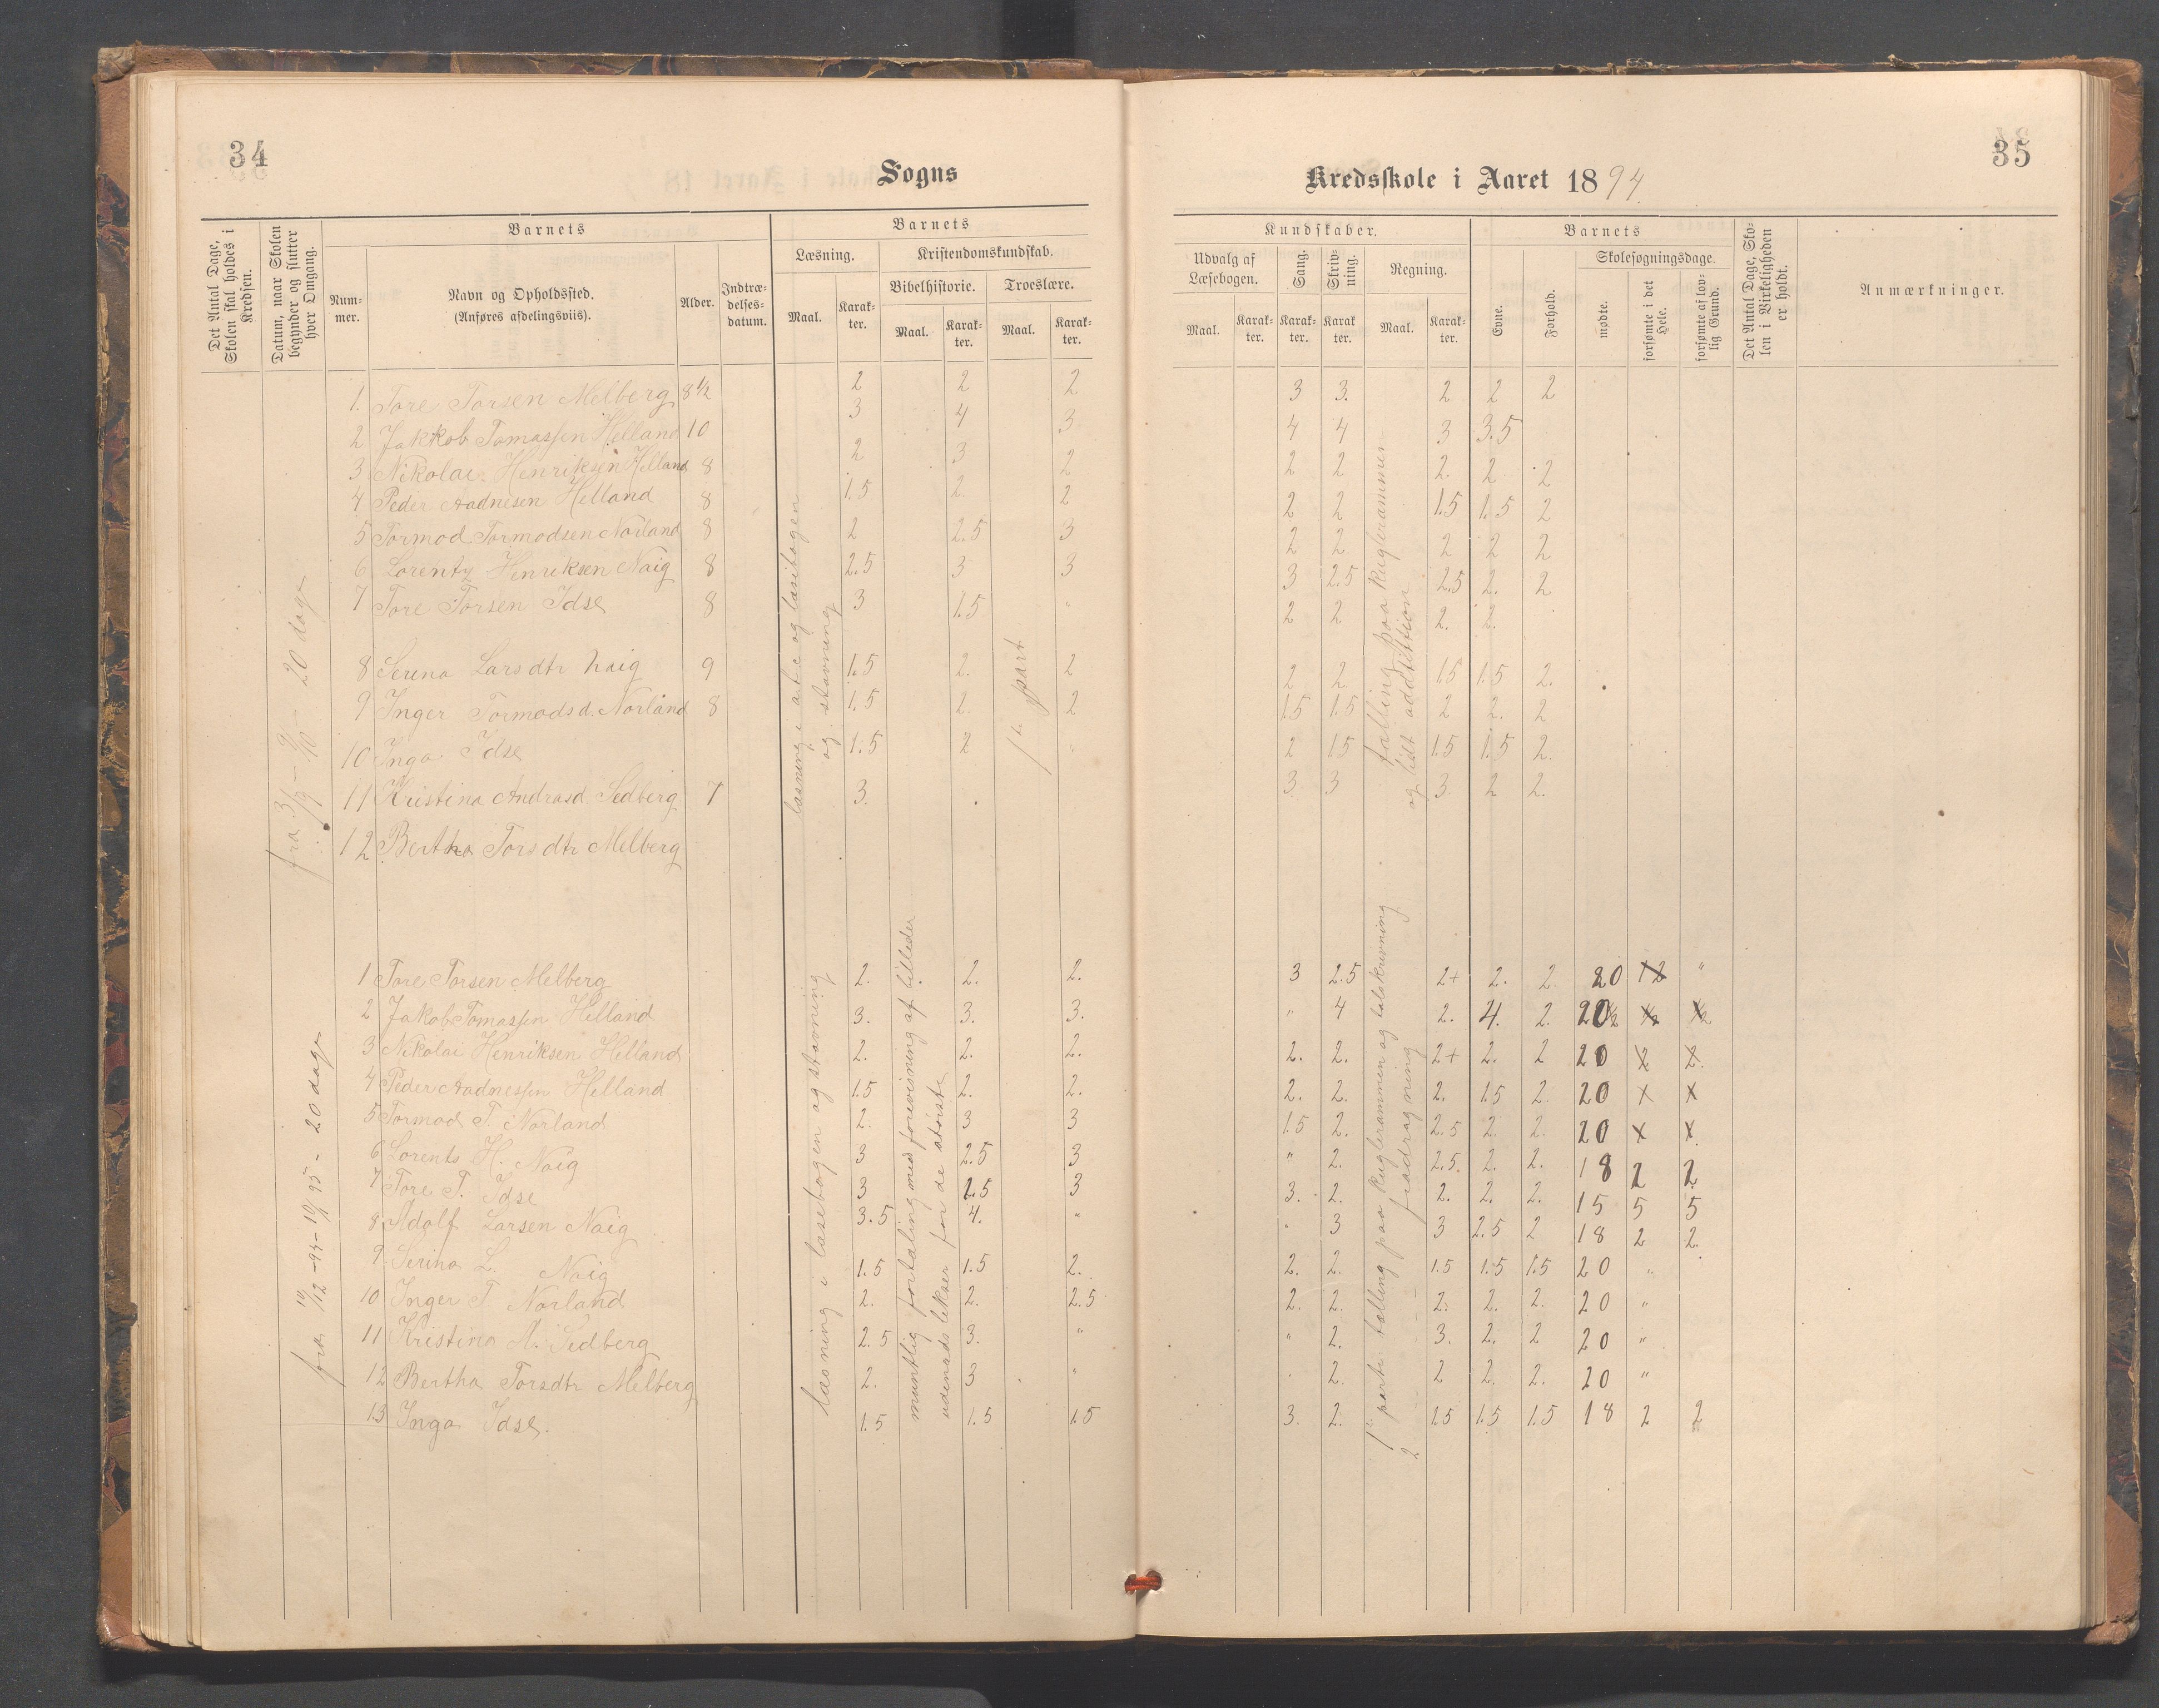 34
Sogns
Det Antal Dage, Skolen skal holdes i Kredsen.
Datum, naar Skolen begynder og slutter hver Omgang.
Barnets
Nummer.
Navn og Opholdssted.
(Anføres afdelingsviis).
Alder.
Indtrædelsesdatum.
Barnets
Læsning.
Kristendomskundskab.
Bibelhistorie.
Troeslære.
Maal.
Karakter.
Maal.
Karakter.
Maal.
Karakter.
fra 3/9 – 9/10 – 20 dage
1. Tore Torsen Melberg 8 1/2 2 2 2
2 Jakkob Tomassen Helland 10 3 4 3
3 Nikolai Henriksen Helland 8 2 3 2
4 Peder Aadnesen Helland 8 1.5 2. 2
5 Tormod Tormodsen Norland 8 2 2.5 3
6 Lorentz Henriksen Naig 8 2.5 3 3
7 Tore Torsen Idse 8 3 1.5 "
8 Serina Larsdtr Naig 9 1.5 2. 2
9 Inger Tormodsd. Norland 8 1.5 2. 2
10 Inga Idse 1.5 2 "
11 Kristina Andrasd. Sedberg 7 3.
12 Bertha Torsdtr Melberg
læsning i abc og læsebogen
og stavning
1ste part
fra 10/12 -94 – 19/1 95 – 20 dage
1 Tore Torsen Melberg 2. 2. 2.
2 Jakob Tomassen Helland 3. 3. 3.
3 Nikolai Henriksen Helland 2. 2. 2.
4 Peder Aadnessen Helland 1.5 2. 2.
5 Tormod T. Norland 2. 3 3
6 Lorents H. Naig 3 2.5 3
7 Tore T. Idse 3 2.5 3
8 Adolf Larsen Naig 3.5 4. "
9 Serina L. Naig 1.5 1.5 2.
10 Inger T. Norland 2. 2. 2.5
11 Kristina A. Sedberg 2.5 3. "
12 Bertha Torsdtr Melberg 2. 3 "
13 Inga Idse. 1.5 1.5 1.5
læsning i læsebogen og stavning
muntlig fortæling med forevisning af billeder
udenadslekser for de største
35
Kredsskole i Aaret 1894.
Kundskaber.
Udvalg af Læsebogen.
Sang.
Skrivning.
Regning.
Maal.
Karakter.
Karakter.
Karakter
Maal.
Karakter.
Barnets
Evne.
Forhold.
Skolesøgningsdage.
mødte.
forsømte i det Hele.
forsømte af lovlig Grund.
Det Antal Dage, Skolen i Virkeligheden er holdt.
Anmærkninger.
3 3. 2 2 2
4 4 3 3.5
2 2 2. 2 2
2 2 1.5 1.5 2
2 2 2 2 2
3 2.5 2.5 2. 2
2 2 2. 2.
2 2 1.5 1.5 2.
1.5 1.5 2 2. 2
2 1.5 1.5 1.5 2.
3 3 3. 2 2.
tælling paa kuglerammen
og lidt addition
3 2.5 2+ 2. 2. 20 "
" 4 2. 4. 2.
2. 2. 2+ 2. 2 20
2. 2. 2. 1.5 2. 20 x x
1.5 2. 2.5 2. 2. 20 x x
" 2. 2.5. 2. 2. 18 2 2
3. 2. 2. 2. 2. 15 5 5
" 3 3 2.5 2 18 2 2
2. 2. 1.5 1.5 1.5 20 "
2. 2. 2. 2. 2. 20 "
" 2. 3. 2. 2 20 "
" 2. 2 2. 2. 20 "
3. 2. 1.5 1.5 1.5 18 2 2
1ste parti tælling paa kuglerammen og talskrivning
2 - - - fradragning